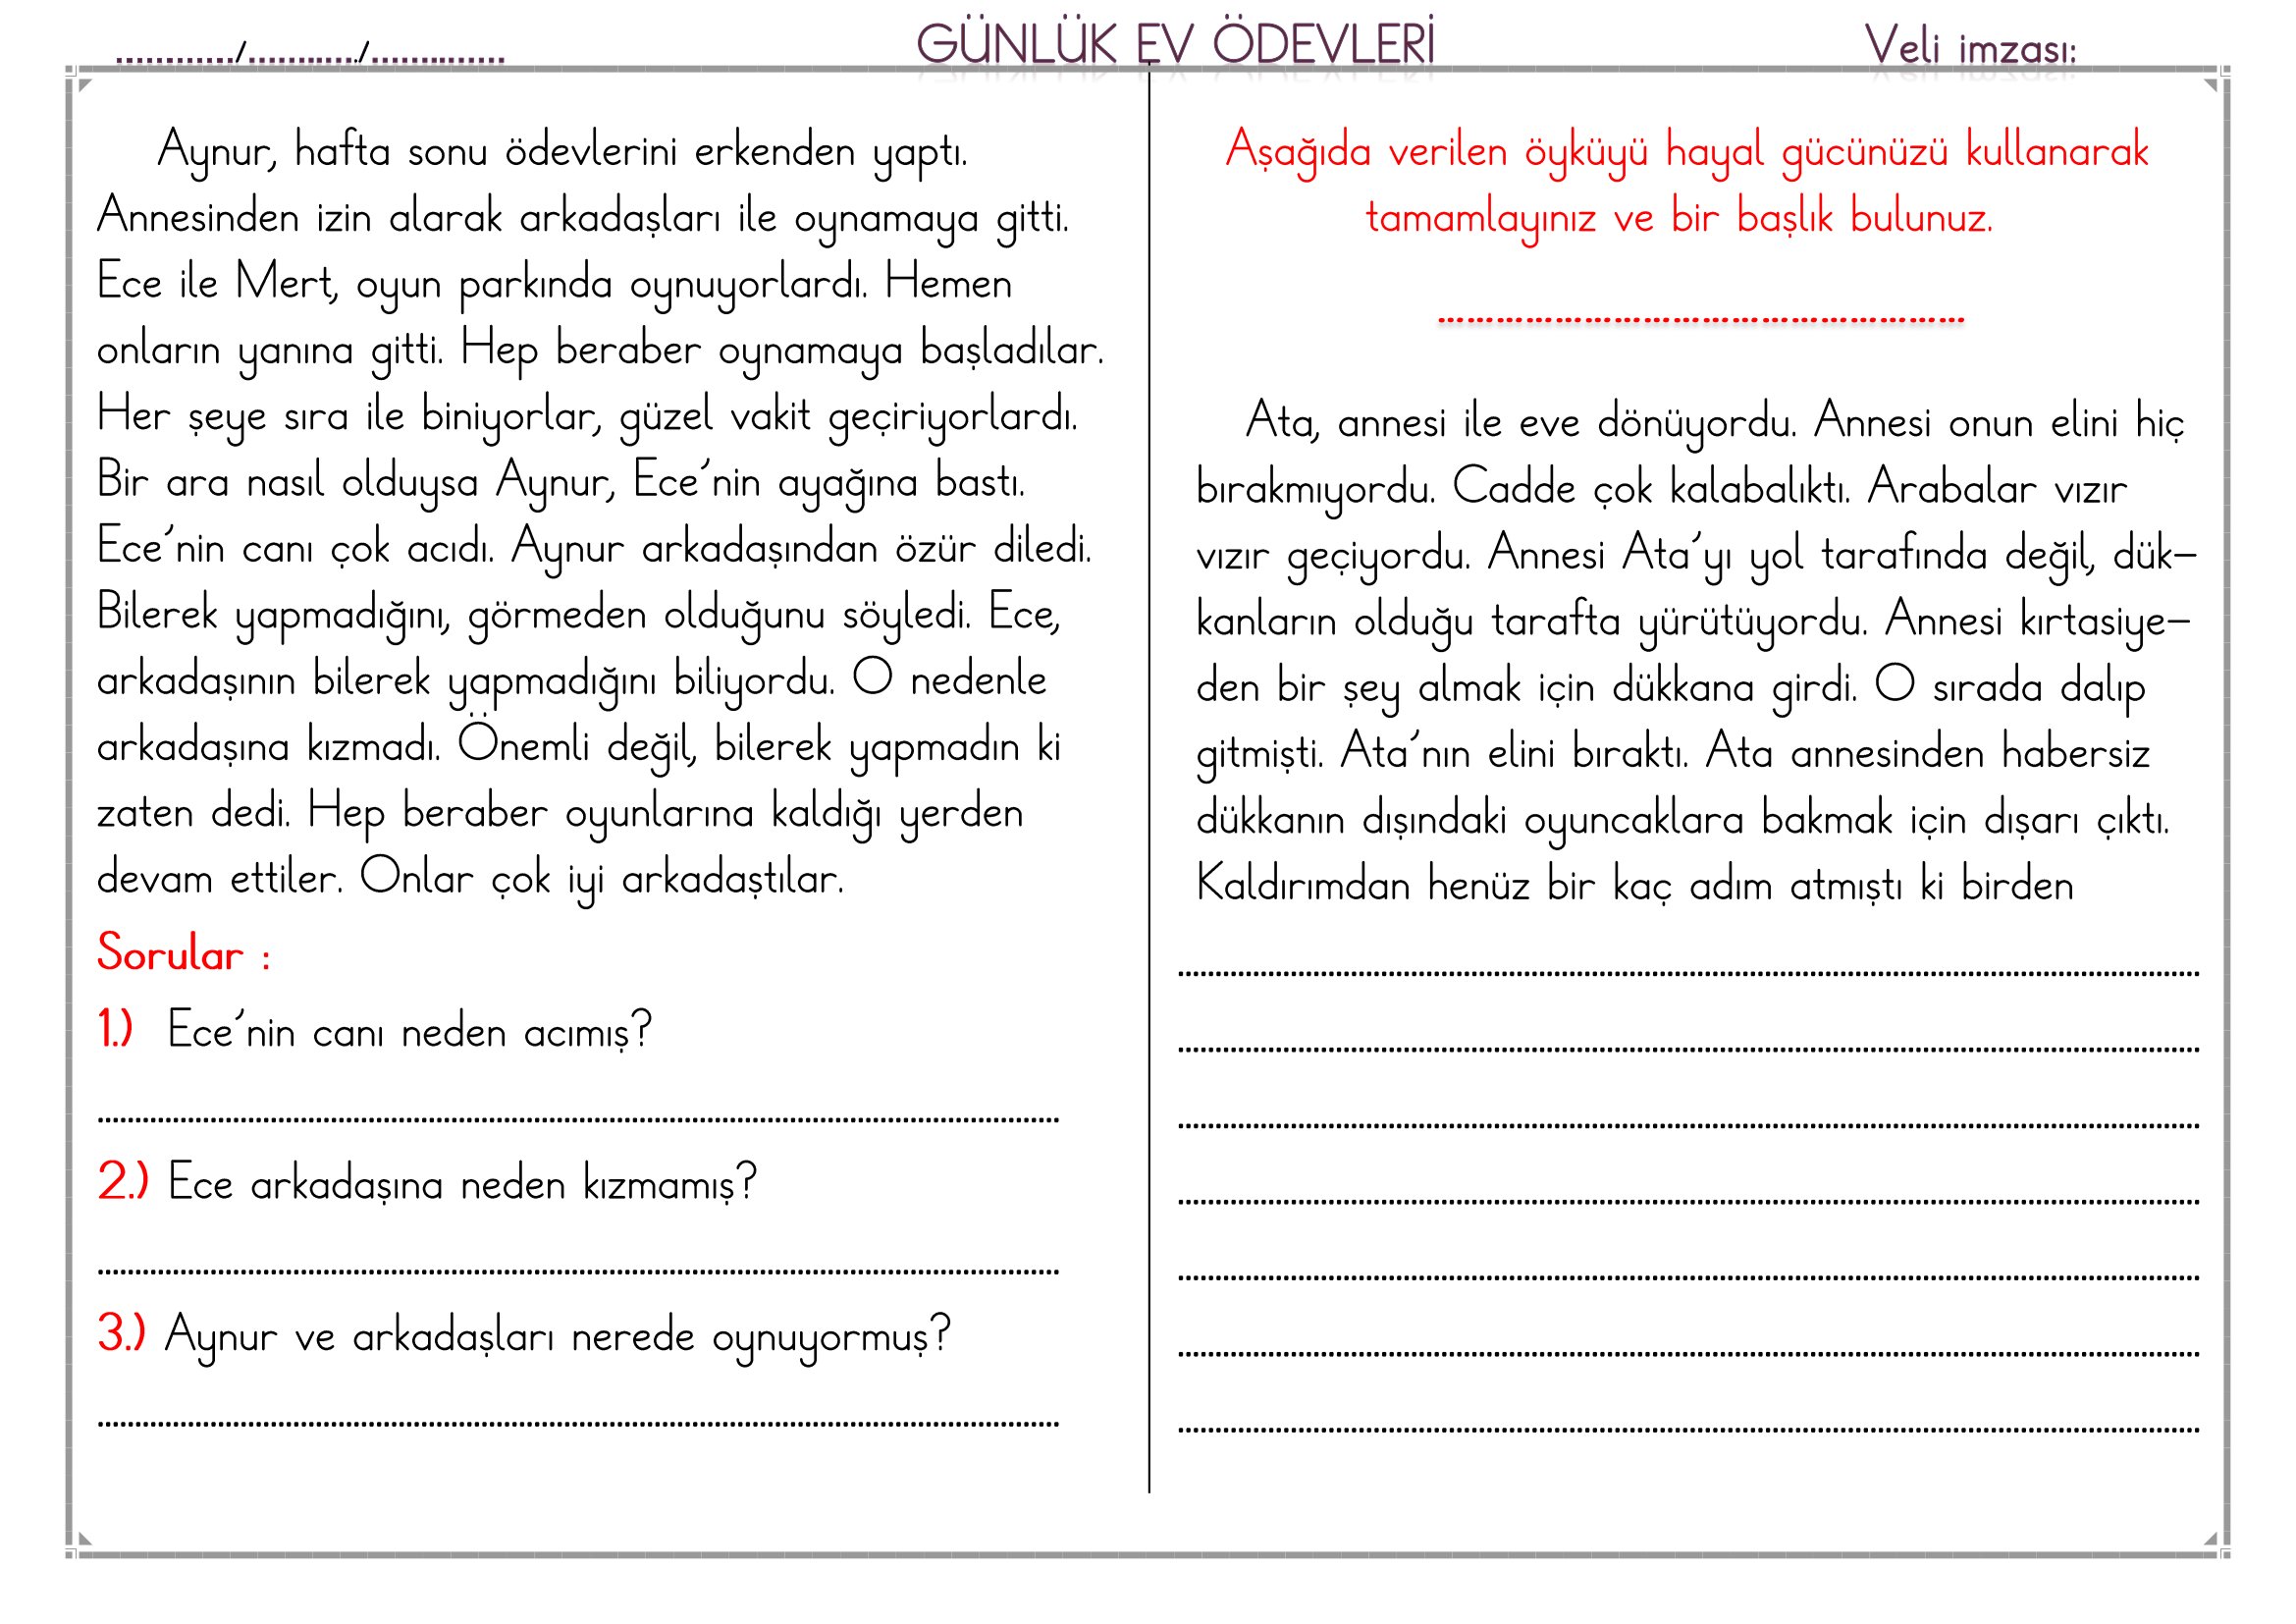 ............../............./................
GÜNLÜK EV ÖDEVLERİ
Veli imzası:
Aynur, hafta sonu ödevlerini erkenden yaptı.
Annesinden izin alarak arkadaşları ile oynamaya gitti.
Ece ile Mert, oyun parkında oynuyorlardı. Hemen
onların yanına gitti. Hep beraber oynamaya başladılar.
Her şeye sıra ile biniyorlar, güzel vakit geçiriyorlardı.
Bir ara nasıl olduysa Aynur, Ece'nin ayağına bastı.
Ece'nin canı çok acıdı. Aynur arkadaşından özür diledi.
Bilerek yapmadığını, görmeden olduğunu söyledi. Ece,
arkadaşının bilerek yapmadığını biliyordu. O nedenle
arkadaşına kızmadı. Önemli değil, bilerek yapmadın ki
zaten dedi. Hep beraber oyunlarına kaldığı yerden
devam ettiler. Onlar çok iyi arkadaştılar.
Sorular :
1.) Ece'nin canı neden acımış?
2.) Ece arkadaşına neden kızmamış?
3.) Aynur ve arkadaşları nerede oynuyormuş?
Aşağıda verilen öyküyü hayal gücünüzü kullanarak
tamamlayınız ve bir başlık bulunuz.
Ata, annesi ile eve dönüyordu. Annesi onun elini hiç
bırakmıyordu. Cadde çok kalabalıktı. Arabalar vızır
vızır geçiyordu. Annesi Ata'yı yol tarafında değil, dük-
kanların olduğu tarafta yürütüyordu. Annesi kırtasiye-
den bir şey almak için dükkana girdi. O sırada dalıp
gitmişti. Ata'nın elini bıraktı. Ata annesinden habersiz
dükkanın dışındaki oyuncaklara bakmak için dışarı çıktı.
Kaldırımdan henüz bir kaç adım atmıştı ki birden